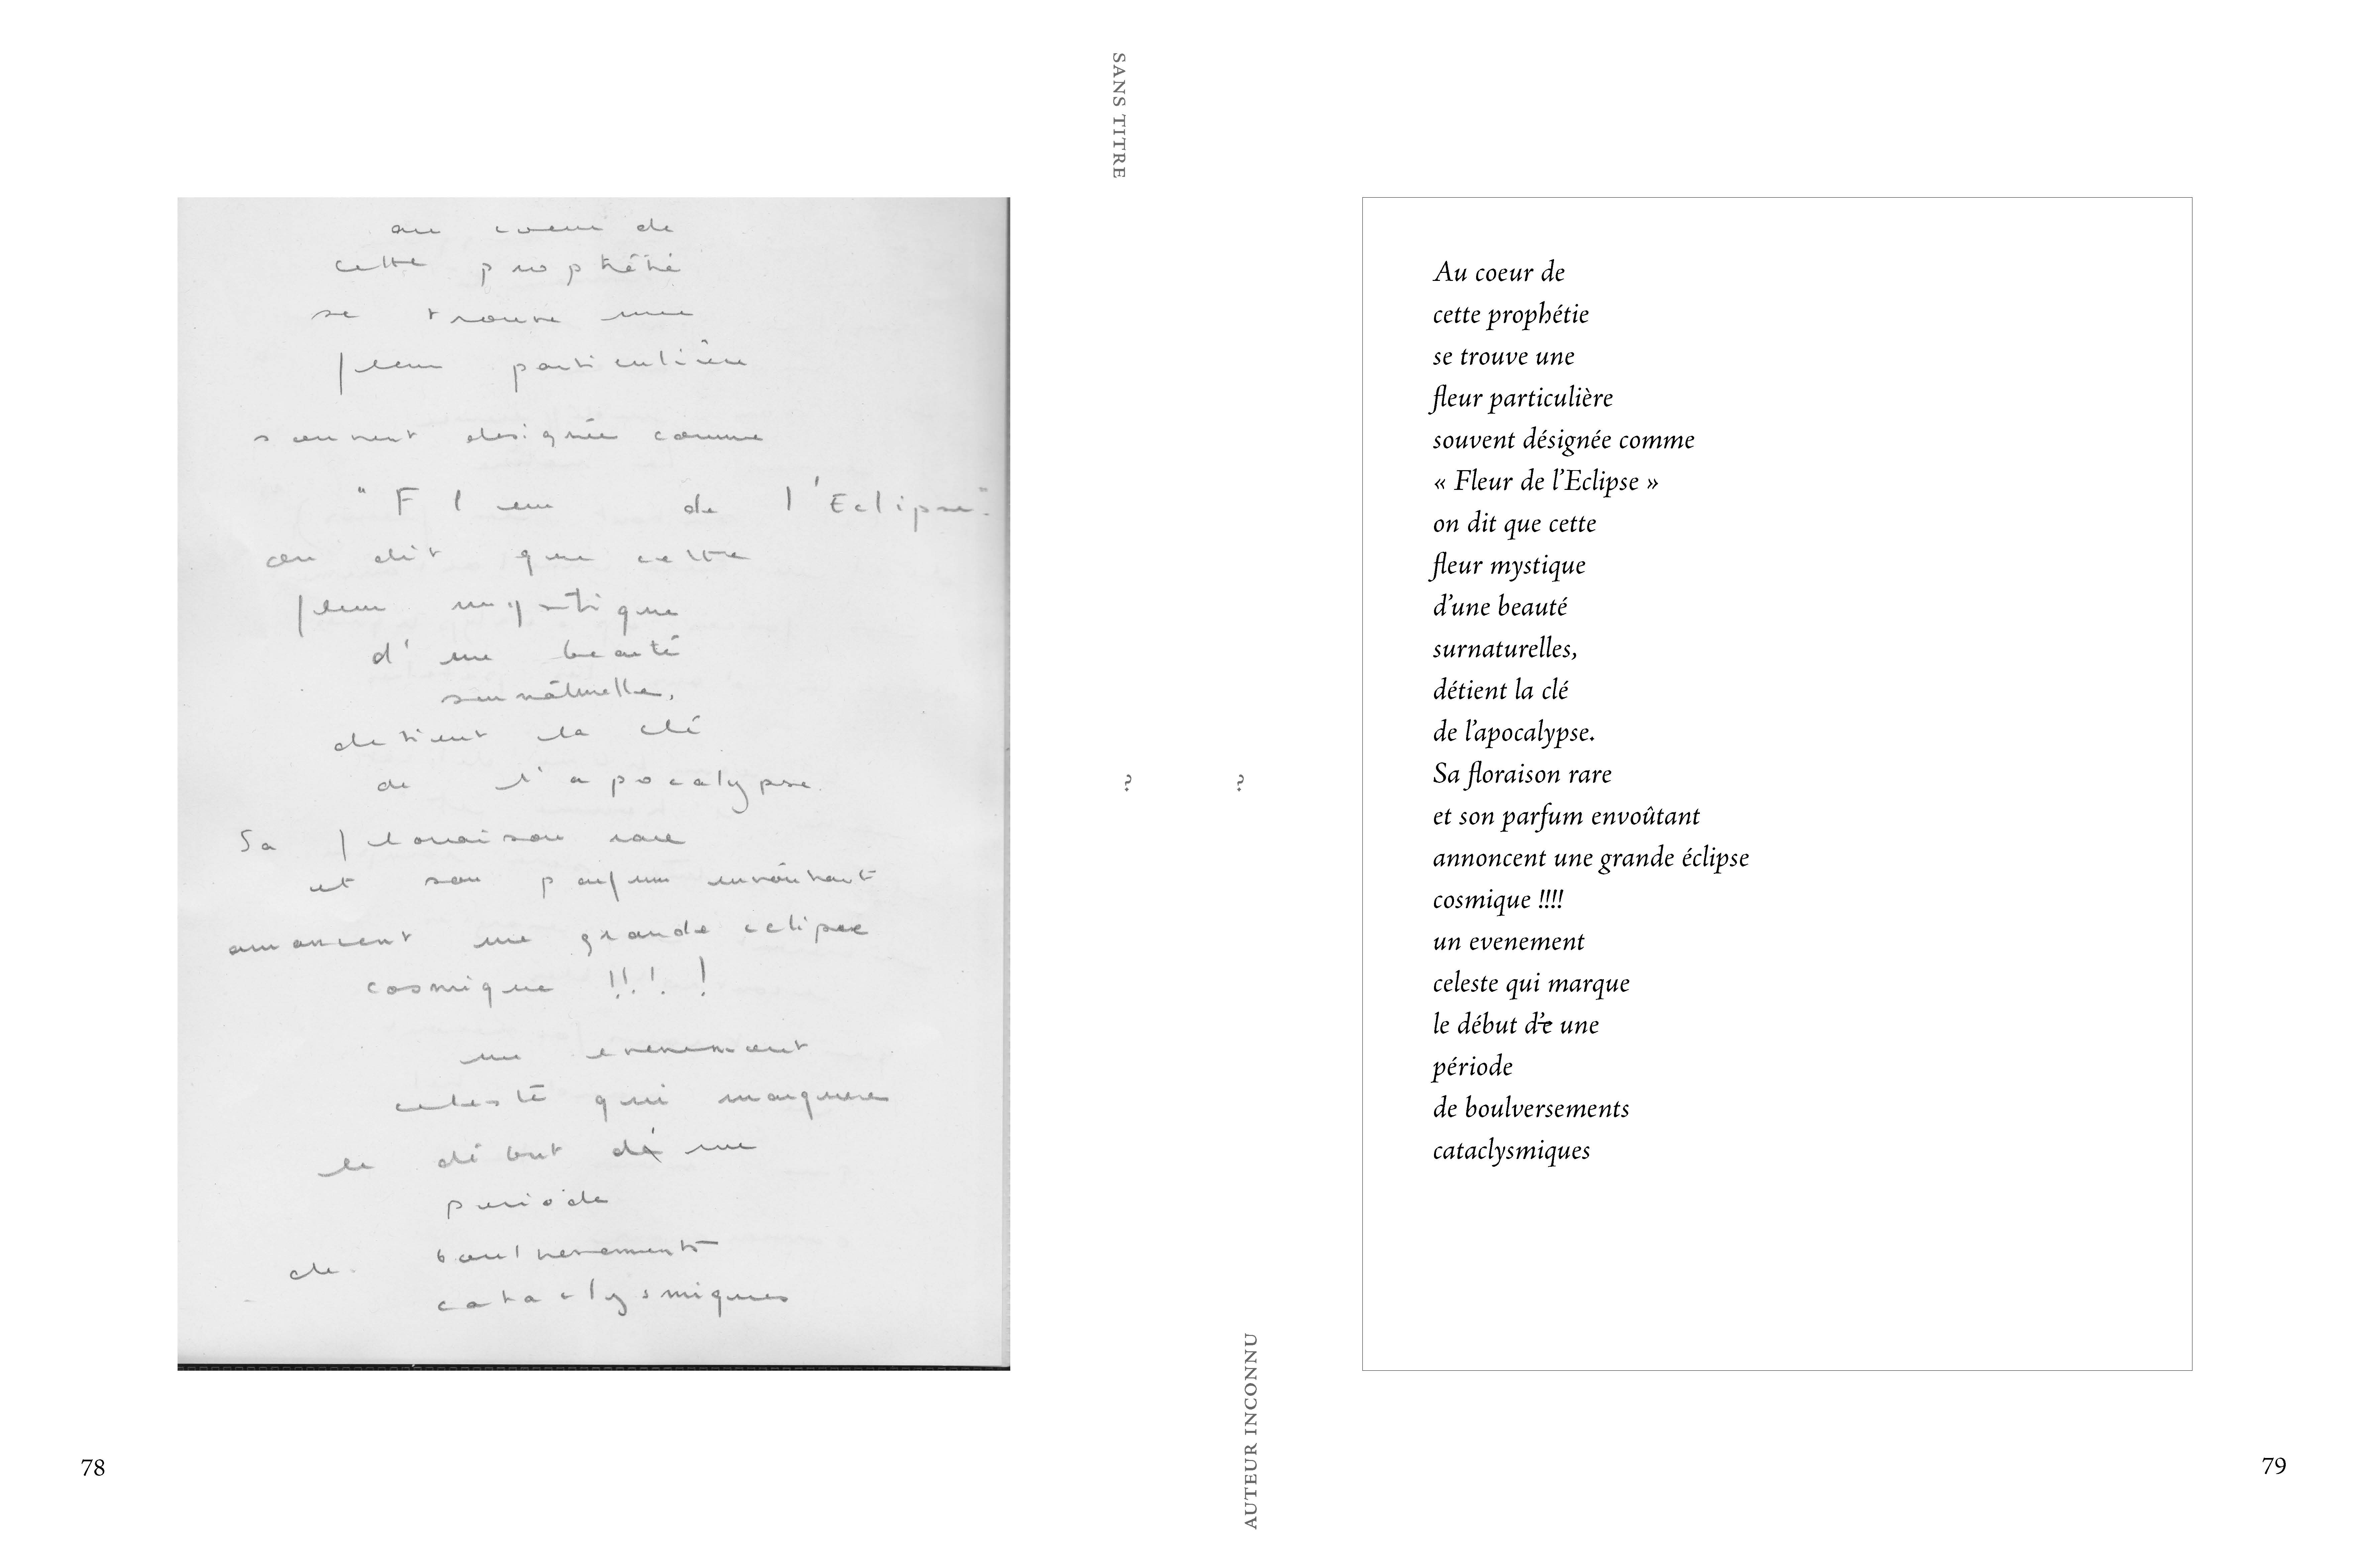 SANS TITRE
au coeur de
cette prophétie
se trouve une
fleur particulière
souvent designée comme
"Fleur de l'Eclipse".
on dit que cette
fleur mystique
d'une beauté
surnâturelle,
detient la clé
de l'apocalypse.
Sa flouraison rare
et son parfum envoûtant
annoncent une grande eclipse
cosmique !!!!
un evenement
celeste qui marque
le début d'e une
periode
de boulversements
cataclysmiques
78
?
?
AUTEUR INCONNU
Au coeur de
cette prophétie
se trouve une
fleur particulière
souvent désignée comme
« Fleur de l'Eclipse »
on dit que cette
fleur mystique
d'une beauté
surnaturelles,
détient la clé
de l'apocalypse.
Sa floraison rare
et son parfum envoûtant
annoncent une grande éclipse
cosmique !!!!
un evenement
celeste qui marque
le début d'e une
période
de boulversements
cataclysmiques
79